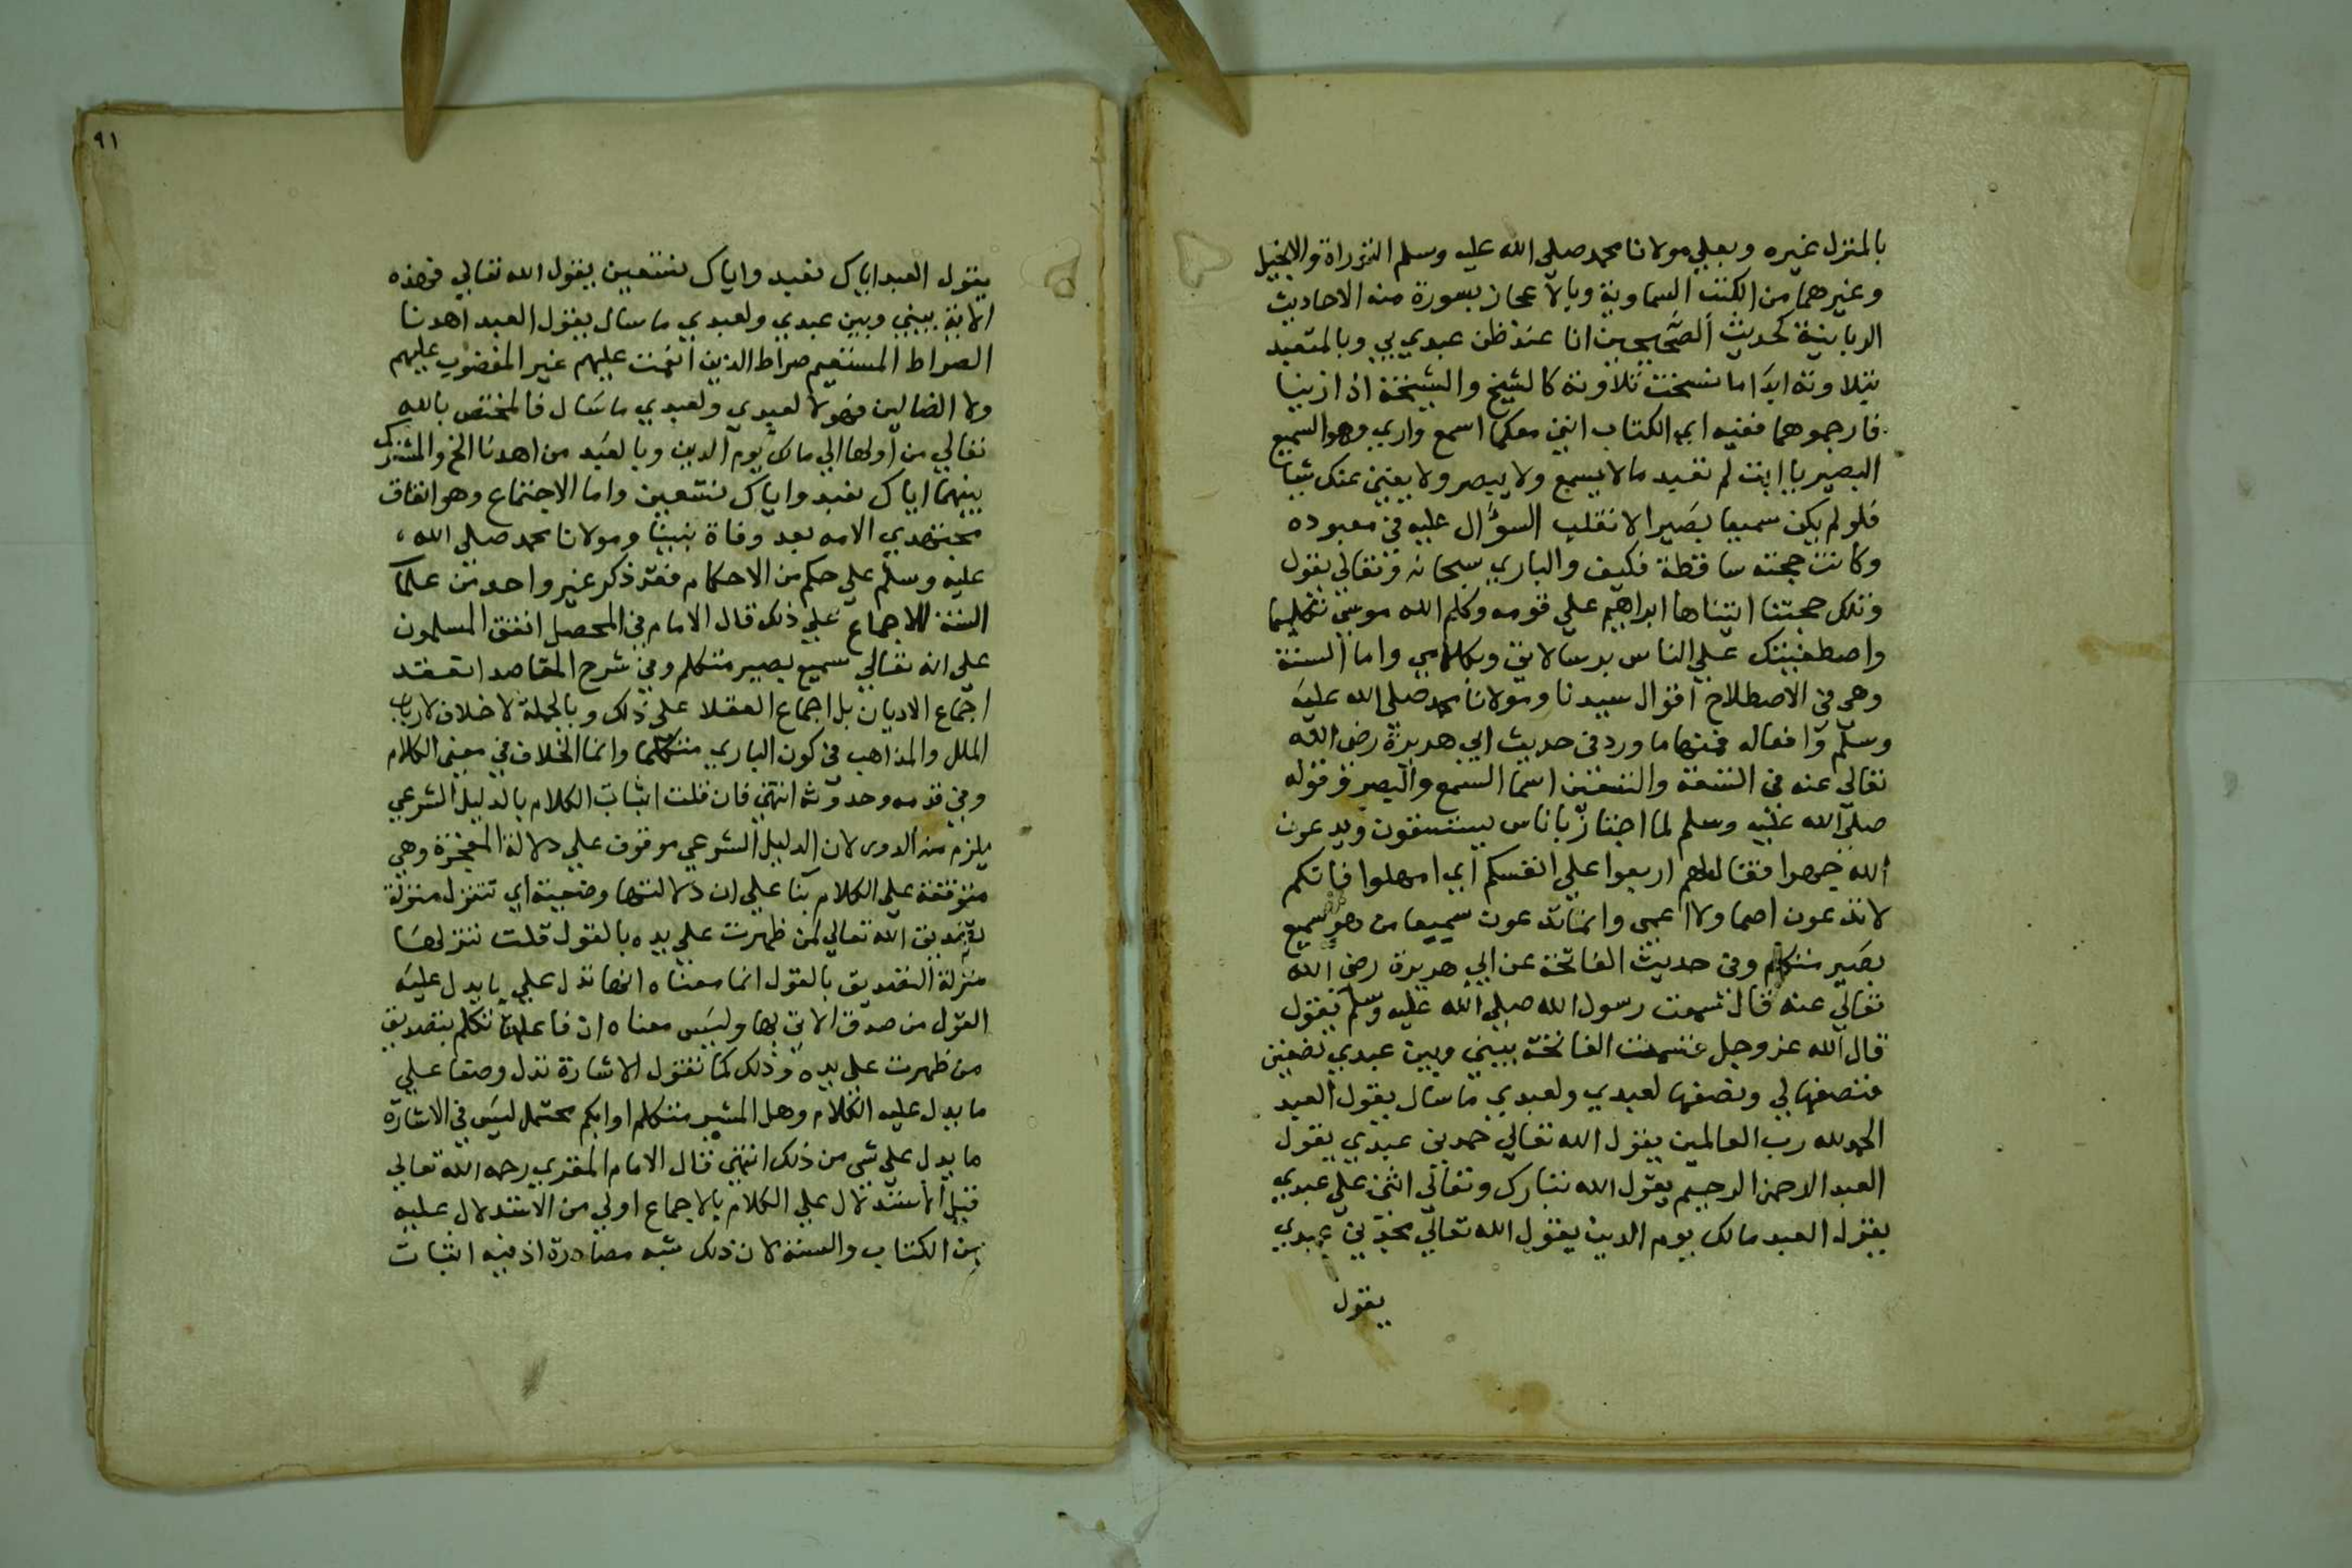 بالمنزل غيره وبعلي مولانا محمد صلى الله عليه وسلم التوراة والانجيل
وغيرهما من الكتب السماوية وبالاعجاز بسورة منه الاحاديث
الربانية كحديث الصحيحين انا عند ظن عبدي بي وبالمتعبد
بتلاوته ابدا ما نسخت تلاوته كالشيخ والشيخة اذا زنيا
فارجموهما ففيه اي الكتاب انني معكما اسمع واري وهو السميع
البصير يا ابت لم تعبد ما لا يسمع ولا يبصر ولا يغني عنك شيا
فلو لم يكن سميعا بصيرا لانقلب السؤال عليه في معبوده
وكانت حجته ساقطة فكيف والباري سبحانه وتعالي يقول
وتلك حجتنا اتيناها ابراهيم علي قومه وكلم الله موسي تكليما
واصطفيتك علي الناس برسالاتي وبكلامي واما السنة
وهي في الاصطلاح اقوال سيدنا ومولانا محمد صلى الله عليه
وسلم وافعاله فمنها ما ورد في حديث ابي هريرة رضي الله
تعالي عنه في التسعة والتسعين اسما السمع والبصر وقوله
صلي الله عليه وسلم لما اجتاز بأناس يستسقون ويدعون
الله جهرا فقال لهم اربعوا علي انفسكم اي امهلوا فانكم
لا تدعون اصما ولا اعمى وانما تدعون سميعا من هو سميع
بصير متكلم وفي حديث الفاتحة عن ابي هريرة رضي الله
تعالي عنه قال سمعت رسول الله صلي الله عليه وسلم يقول
قال الله عز وجل قسمت الفاتحة بيني وبين عبدي نصفين
فنصفها لي ونصفها لعبدي ولعبدي ما سال يقول العبد
الحمد لله رب العالمين يقول الله تعالي حمدني عبدي يقول
العبد الرحمن الرحيم يقول الله تبارك وتعالي اثني علي عبدي
يقول العبد مالك يوم الدين يقول الله تعالي مجدني عبدي
يقول
٩١
يقول العبد اياك نعبد واياك نستعين يقول الله تعالي فهذه
الاية بيني وبين عبدي ولعبدي ما سال يقول العبد اهدنا
الصراط المستقيم صراط الذين انعمت عليهم غير المغضوب عليهم
ولا الضالين فهولا لعبدي ولعبدي ما سال فالمختص بالله
تعالي من اولها الي مالك يوم الدين وبالعبد من اهدنا الخ والمشترك
بينهما اياك نعبد واياك نستعين واما الاجتماع وهو اتفاق
مجتهدي الامه بعد وفاة نبينا ومولانا محمد صلى الله
عليه وسلم علي حكم من الاحكام فقد ذكر غير واحد من علما
السنة الاجماع علي ذلك قال الامام في المحصل اتفق المسلمون
علي انه تعالي سميع بصير متكلم وفي شرح المقاصد انعقد
اجماع الاديان بل اجماع العقلا علي ذلك وبالجملة لا خلاف لارباب
الملل والمذاهب في كون الباري متكلما وانما الخلاف في معني الكلام
وفي قدمه وحدوثه انتهي فان قلت اثبات الكلام بالدليل الشرعي
يلزم منه الدور لان الدليل الشرعي موقوف علي دلالة المعجزة وهي
متوقفة علي الكلام بنا علي ان دلالتها وضعية اي تتنزل منزلة
تصديق الله تعالي لمن ظهرت علي يده بالقول قلت تنزلها
منزلة التصديق بالقول انما معناه انها تدل علي ما يدل عليه
القول من صدق الاتي بها وليس معناه ان فاعلها تكلم بتصديق
من ظهرت علي يده وذلك كما تقول الاشارة تدل وضعا علي
ما يدل عليه الكلام وهل المشير متكلم او ابكم محتمل ليس في الاشارة
ما يدل علي شي من ذلك انتهي قال الامام المقري رحمه الله تعالي
قيل الاستدلال علي الكلام بالاجماع اولي من الاستدلال عليه
من الكتاب والسنة لان ذلك شبه مصادرة اذ فيه اثبات